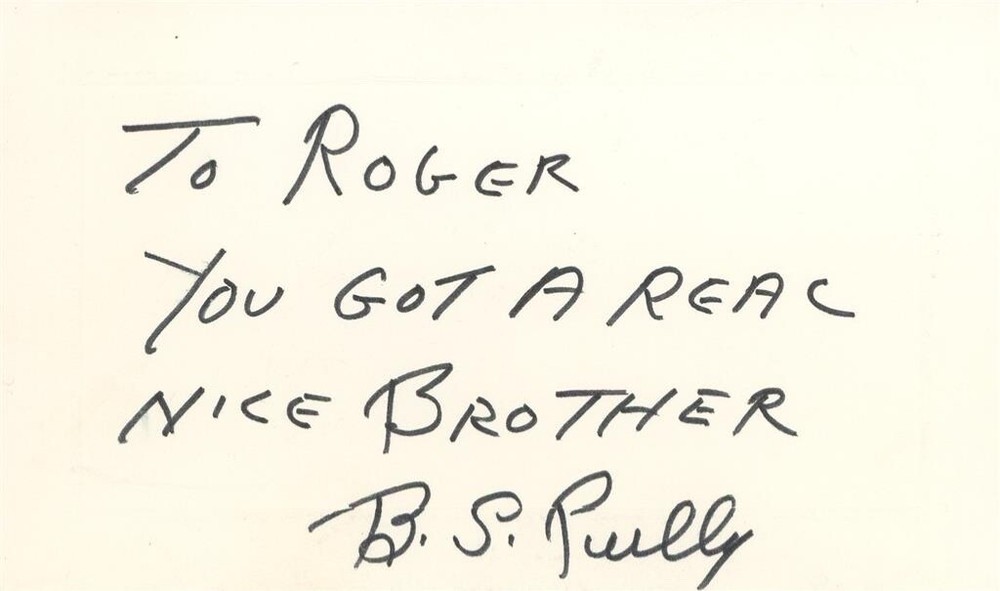 To ROGER
YOU GOT A REAL
NICE BROTHER
B. S. Pully